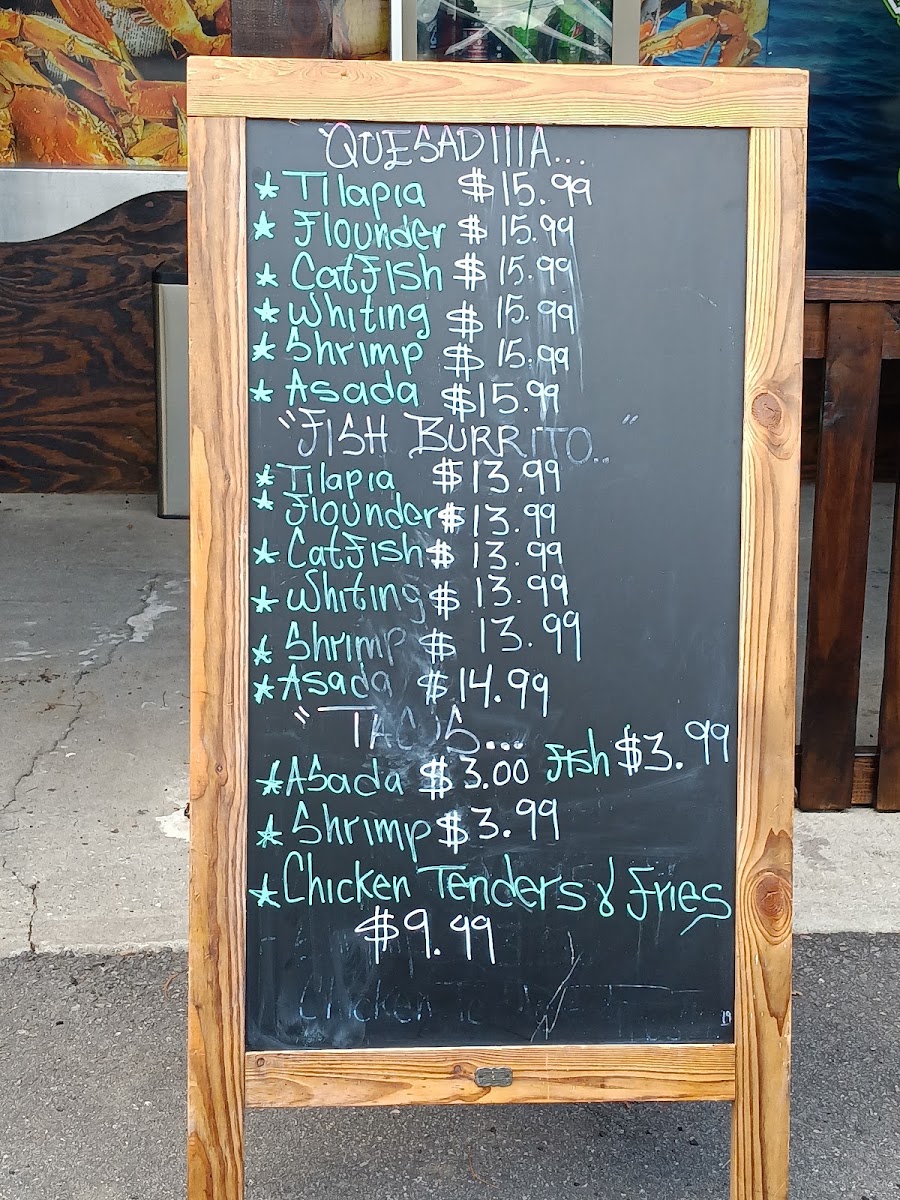 "QUESADIllA...
* Tilapia $15.99
* Flounder $15.99
* CatFish $15.99
* Whiting $15.99
* Shrimp $15.99
* Asada $15.99
"FISH BURRITO.."
* Tilapia $13.99
* Flounder $13.99
* CatFish $13.99
* Whiting $13.99
* Shrimp $13.99
* Asada $14.99
"TACOS...
* Asada $3.00 Fish $3.99
* Shrimp $3.99
* Chicken Tenders & Fries
$9.99
Chicken